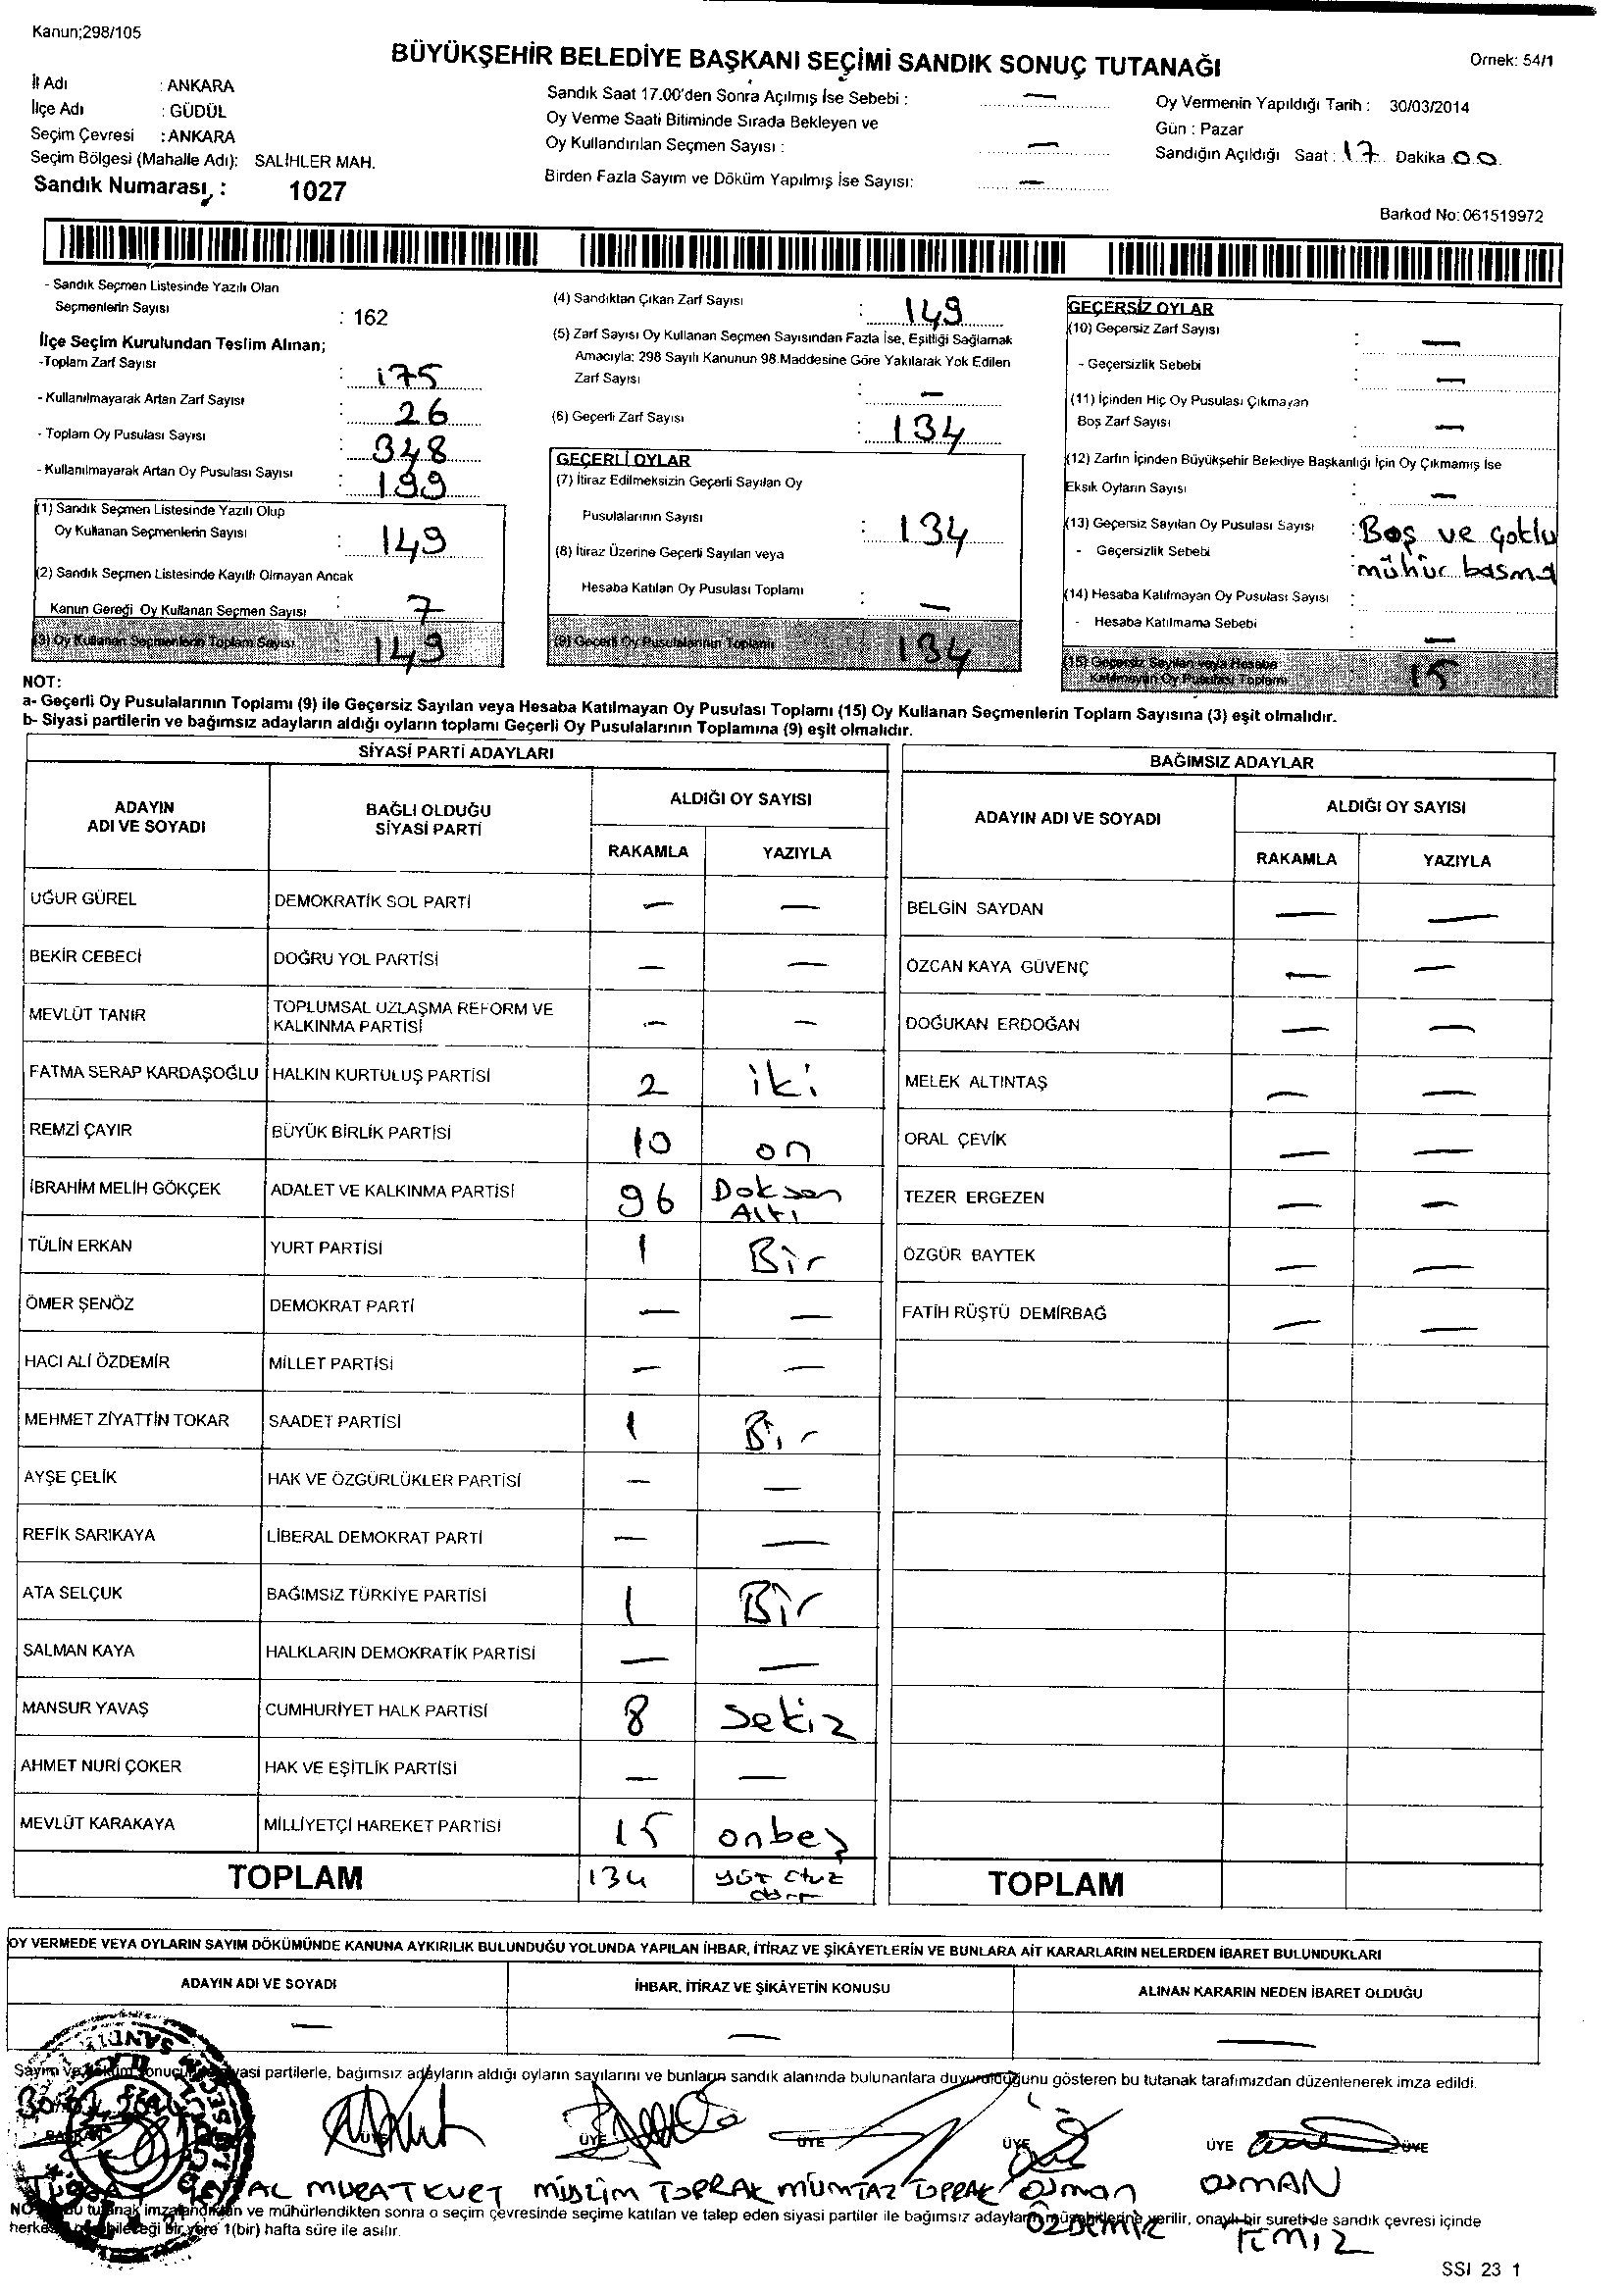 Kanun;298/105
BÜYÜKŞEHİR BELEDİYE BAŞKANI SEÇİMİ SANDIK SONUÇ TUTANAĞI
Örnek: 54/1
İl Adı : ANKARA
İlçe Adı : GÜDÜL
Seçim Çevresi : ANKARA
Seçim Bölgesi (Mahalle Adı): SALİHLER MAH.
Sandık Numarası : 1027
Sandık Saat 17.00'den Sonra Açılmış İse Sebebi : —
Oy Verme Saati Bitiminde Sırada Bekleyen ve
Oy Kullandırılan Seçmen Sayısı : —
Birden Fazla Sayım ve Döküm Yapılmış İse Sayısı: —
Oy Vermenin Yapıldığı Tarih : 30/03/2014
Gün : Pazar
Sandığın Açıldığı Saat : 17 Dakika 00
Barkod No: 061519972
- Sandık Seçmen Listesinde Yazılı Olan
Seçmenlerin Sayısı : 162
İlçe Seçim Kurulundan Teslim Alınan;
-Toplam Zarf Sayısı : 175
- Kullanılmayarak Artan Zarf Sayısı : 26
- Toplam Oy Pusulası Sayısı : 348
- Kullanılmayarak Artan Oy Pusulası Sayısı : 199
(1) Sandık Seçmen Listesinde Yazılı Olup
Oy Kullanan Seçmenlerin Sayısı : 149
(2) Sandık Seçmen Listesinde Kayıtlı Olmayan Ancak
Kanun Gereği Oy Kullanan Seçmen Sayısı : 7
(3) Oy Kullanan Seçmenlerin Toplam Sayısı 149
(4) Sandıktan Çıkan Zarf Sayısı : 149
(5) Zarf Sayısı Oy Kullanan Seçmen Sayısından Fazla İse, Eşitliği Sağlamak
Amacıyla; 298 Sayılı Kanunun 98.Maddesine Göre Yakılarak Yok Edilen
Zarf Sayısı : —
(6) Geçerli Zarf Sayısı : 134
GEÇERLİ OYLAR
(7) İtiraz Edilmeksizin Geçerli Sayılan Oy
Pusulalarının Sayısı : 134
(8) İtiraz Üzerine Geçerli Sayılan veya
Hesaba Katılan Oy Pusulası Toplamı : —
(9) Geçerli Oy Pusulalarının Toplamı 134
GEÇERSİZ OYLAR
(10) Geçersiz Zarf Sayısı : —
- Geçersizlik Sebebi : —
(11) İçinden Hiç Oy Pusulası Çıkmayan
Boş Zarf Sayısı : —
(12) Zarfın İçinden Büyükşehir Belediye Başkanlığı İçin Oy Çıkmamış İse
Eksik Oyların Sayısı : —
(13) Geçersiz Sayılan Oy Pusulası Sayısı : Boş ve çoklu
- Geçersizlik Sebebi : mühür basma
(14) Hesaba Katılmayan Oy Pusulası Sayısı :
- Hesaba Katılmama Sebebi : —
(15) Geçersiz Sayılan veya Hesaba
Katılmayan Oy Pusulası Toplamı 15
NOT:
a- Geçerli Oy Pusulalarının Toplamı (9) ile Geçersiz Sayılan veya Hesaba Katılmayan Oy Pusulası Toplamı (15) Oy Kullanan Seçmenlerin Toplam Sayısına (3) eşit olmalıdır.
b- Siyasi partilerin ve bağımsız adayların aldığı oyların toplamı Geçerli Oy Pusulalarının Toplamına (9) eşit olmalıdır.
SİYASİ PARTİ ADAYLARI
ADAYIN ADI VE SOYADI BAĞLI OLDUĞU SİYASİ PARTİ ALDIĞI OY SAYISI
RAKAMLA YAZIYLA
UĞUR GÜREL DEMOKRATİK SOL PARTİ — —
BEKİR CEBECİ DOĞRU YOL PARTİSİ — —
MEVLÜT TANIR TOPLUMSAL UZLAŞMA REFORM VE
KALKINMA PARTİSİ — —
FATMA SERAP KARDAŞOĞLU HALKIN KURTULUŞ PARTİSİ 2 iki
REMZİ ÇAYIR BÜYÜK BİRLİK PARTİSİ 10 on
İBRAHİM MELİH GÖKÇEK ADALET VE KALKINMA PARTİSİ 96 Doksan
Altı
TÜLİN ERKAN YURT PARTİSİ 1 Bir
ÖMER ŞENÖZ DEMOKRAT PARTİ — —
HACI ALİ ÖZDEMİR MİLLET PARTİSİ — —
MEHMET ZİYATTİN TOKAR SAADET PARTİSİ 1 Bir
AYŞE ÇELİK HAK VE ÖZGÜRLÜKLER PARTİSİ — —
REFİK SARIKAYA LİBERAL DEMOKRAT PARTİ — —
ATA SELÇUK BAĞIMSIZ TÜRKİYE PARTİSİ 1 Bir
SALMAN KAYA HALKLARIN DEMOKRATİK PARTİSİ — —
MANSUR YAVAŞ CUMHURİYET HALK PARTİSİ 8 Sekiz
AHMET NURİ ÇOKER HAK VE EŞİTLİK PARTİSİ — —
MEVLÜT KARAKAYA MİLLİYETÇİ HAREKET PARTİSİ 15 onbeş
TOPLAM 134 yüz otuz
dört
BAĞIMSIZ ADAYLAR
ADAYIN ADI VE SOYADI ALDIĞI OY SAYISI
RAKAMLA YAZIYLA
BELGİN SAYDAN — —
ÖZCAN KAYA GÜVENÇ — —
DOĞUKAN ERDOĞAN — —
MELEK ALTINTAŞ — —
ORAL ÇEVİK — —
TEZER ERGEZEN — —
ÖZGÜR BAYTEK — —
FATİH RÜŞTÜ DEMİRBAĞ — —
TOPLAM
OY VERMEDE VEYA OYLARIN SAYIM DÖKÜMÜNDE KANUNA AYKIRILIK BULUNDUĞU YOLUNDA YAPILAN İHBAR, İTİRAZ VE ŞİKÂYETLERİN VE BUNLARA AİT KARARLARIN NELERDEN İBARET BULUNDUKLARI
ADAYIN ADI VE SOYADI İHBAR, İTİRAZ VE ŞİKÂYETİN KONUSU ALINAN KARARIN NEDEN İBARET OLDUĞU
— — —
Sayım ve döküm siyasi partilerle, bağımsız adayların aldığı oyların sayılarını ve bunların sandık alanında bulunanlara duyurulduğunu gösteren bu tutanak tarafımızdan düzenlenerek imza edildi.
BAŞKAN ÜYE ÜYE ÜYE ÜYE ÜYE ÜYE
MURAT KURT MÜSLİM TOPRAK MÜMTAZ TOPRAK Osman OSMAN
ÖZDEMİR TEMİZ
Bu tutanak imzalandıktan ve mühürlendikten sonra o seçim çevresinde seçime katılan ve talep eden siyasi partiler ile bağımsız adayların müşahitlerine verilir, onaylı bir sureti de sandık çevresi içinde
herkesin görebileceği bir yere 1(bir) hafta süre ile asılır.
SSI 23 1